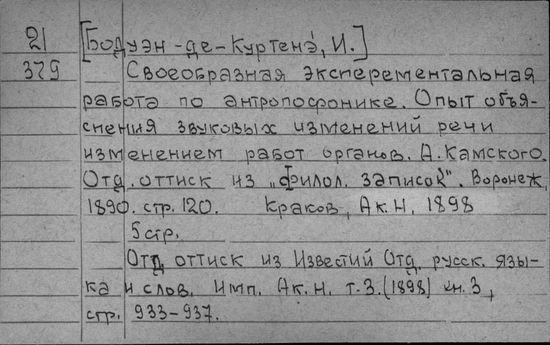 21 [Бодуэн-де-Куртенэ́, И.]
379 Своеобразная эксперементальная
работа по антропофонике. Опыт объя-
снения звуковых изменений речи
изменением работ органов. А. Камского.
Отд. оттиск из „Филол. записок". Воронеж,
1890. стр. 120. Краков, Ак. Н, 1898
5 стр.
Отд оттиск из Известий Отд. русск. язы-
ка и слов. Имп. Ак. Н. т. 3. (1898) кн. 3,
стр. 933-937.